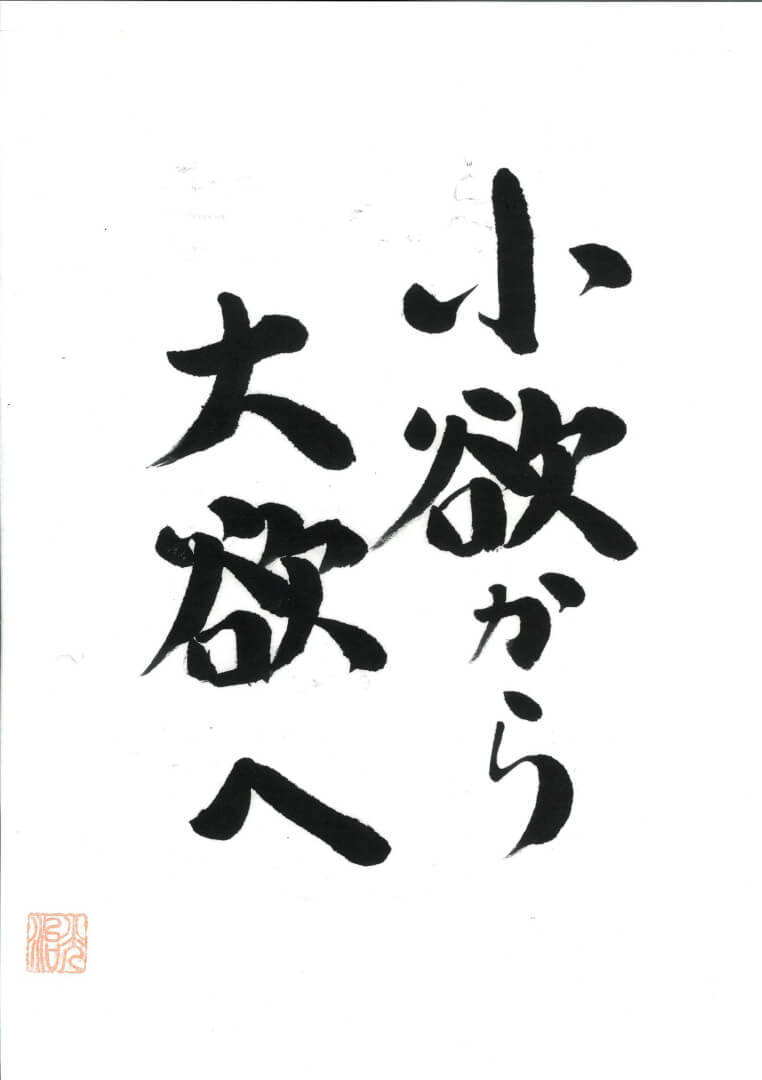 小欲から
大欲へ